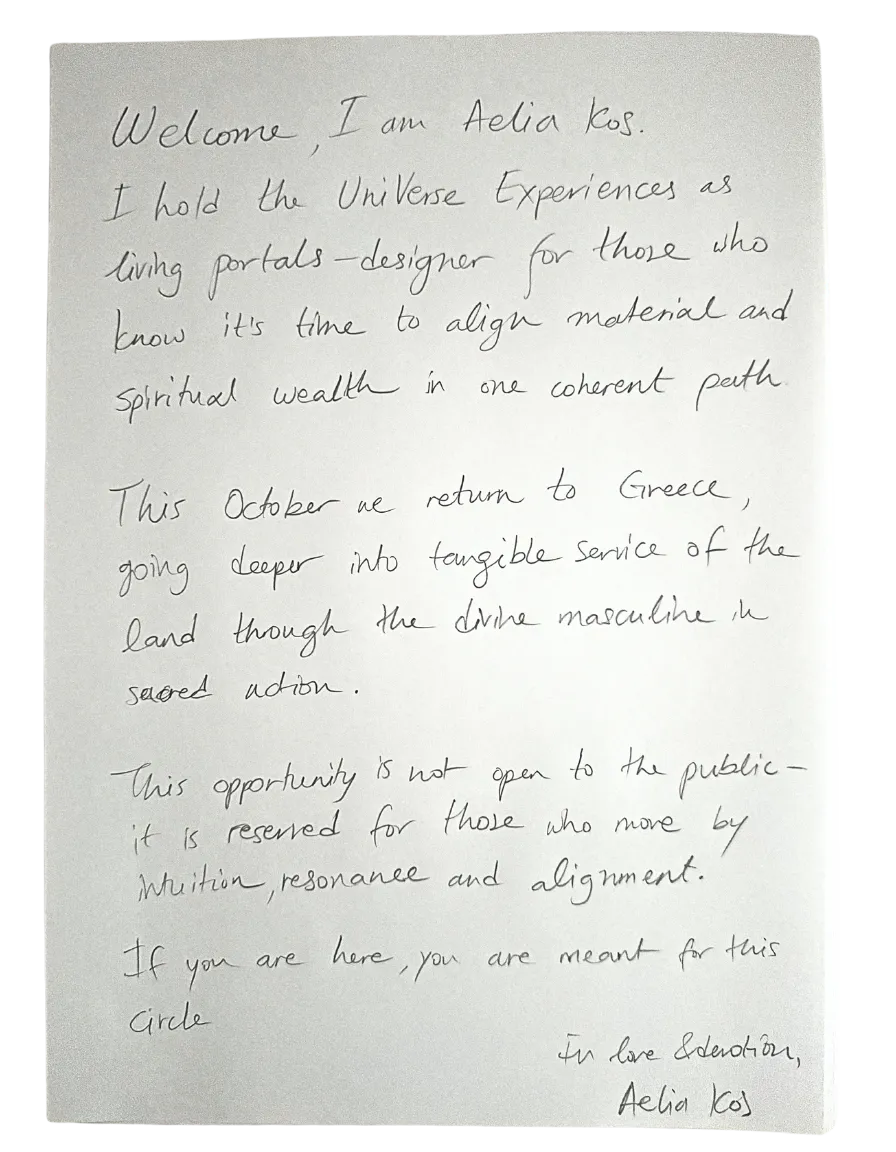 Welcome, I am Aelia Kos.
I hold the UniVerse Experiences as
living portals-designer for those who
know it's time to align material and
spiritual wealth in one coherent path.
This October we return to Greece,
going deeper into tangible service of the
land through the divine masculine in
sacred action.
This opportunity is not open to the public-
it is reserved for those who move by
intuition, resonance and alignment.
If you are here, you are meant for this
Circle
In love & devotion,
Aelia Kos